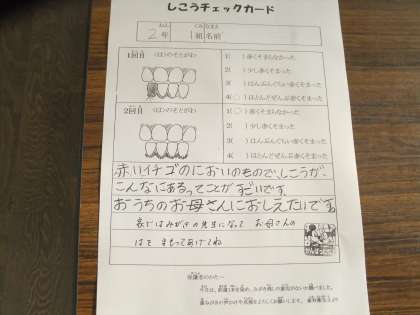 しこうチェックカード
ねん くみ なまえ
2年 1組 名前
1回目 (はのそとがわ)
1( )赤くそまらなかった
2( )少し赤くそまった
3( )はんぶんぐらい赤くそまった
4(○)ほとんどぜんぶ赤くそまった
2回目 (はのそとがわ)
1(○)赤くそまらなかった
2( )少し赤くそまった
3( )はんぶんぐらい赤くそまった
4( )ほとんどぜんぶ赤くそまった
赤いイチゴのにおいのもので、しこうが、
こんなにあるってことがすごいです。
おうちのお母さんにおしえたいです。
家ではみがきの先生になって お母さんの
はを まもってあげてね
保護者のかたへ